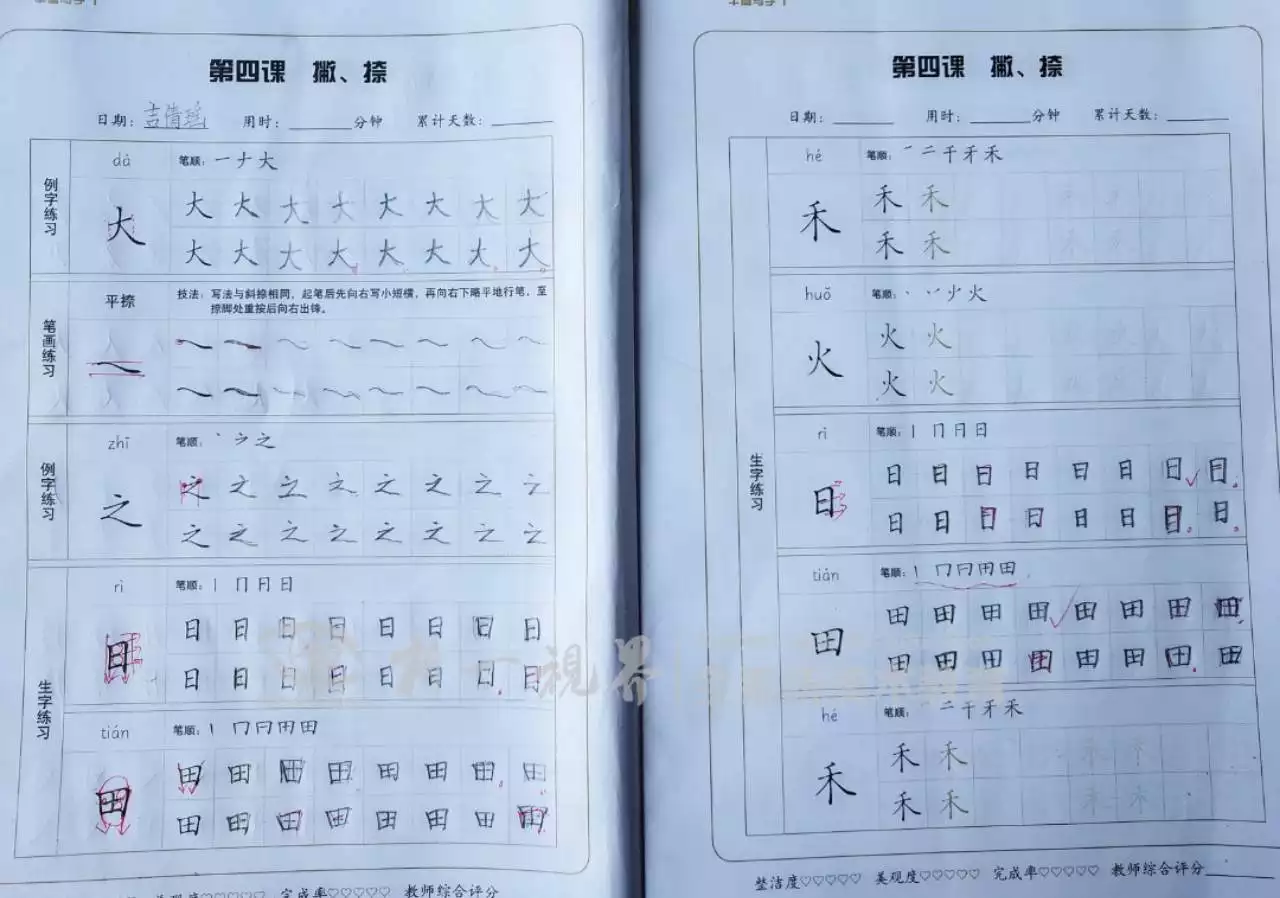 第四课 撇、捺
日期: 吉倩瑶 用时: 分钟 累计天数:
例字练习
dà
笔顺: 一 ナ 大
大
大 大 大 大 大 大 大 大
大 大 大 大 大 大 大 大
笔画练习
平捺
技法: 写法与斜捺相同,起笔后先向右写小短横,再向右下略平地行笔,至
捺脚处重按后向右出锋。
例字练习
zhī
笔顺: 丶 ㇇ 之
之
之 之 之 之 之 之 之 之
之 之 之 之 之 之 之 之
生字练习
rì
笔顺: 丨 冂 月 日
日
日 日 日 日 日 日 日 日
日 日 日 日 日 日 日 日
tián
笔顺: 丨 冂 冂 用 田
田
田 田 田 田 田 田 田 田
田 田 田 田 田 田 田 田
美观度♡♡♡♡♡ 完成率♡♡♡♡♡ 教师综合评分
第四课 撇、捺
日期: 用时: 分钟 累计天数:
生字练习
hé
笔顺: 丿 二 千 禾 禾
禾
禾 禾
禾 禾
huǒ
笔顺: 丶 丷 火 火
火
火 火
火 火
rì
笔顺: 丨 冂 月 日
日
日 日 日 日 日 日 日 日
日 日 日 日 日 日 日 日
tián
笔顺: 丨 冂 冂 用 田
田
田 田 田 田 田 田 田 田
田 田 田 田 田 田 田 田
hé
笔顺: 丿 二 千 禾 禾
禾
禾 禾
禾 禾
整洁度♡♡♡♡♡ 美观度♡♡♡♡♡ 完成率♡♡♡♡♡ 教师综合评分
視界